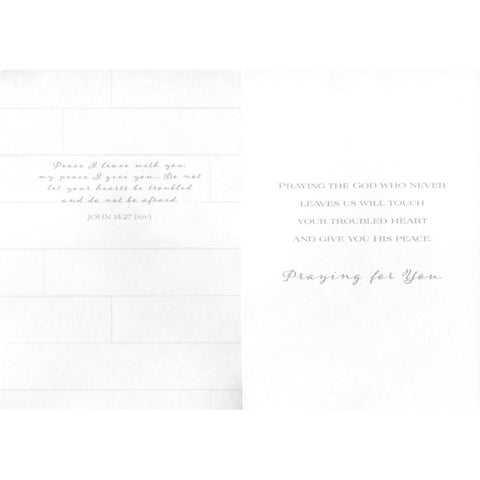 Peace I leave with you;
my peace I give you. Do not
let your hearts be troubled
and do not be afraid.
JOHN 14:27 (NIV)
PRAYING THE GOD WHO NEVER
LEAVES US WILL TOUCH
YOUR TROUBLED HEART
AND GIVE YOU HIS PEACE.
Praying for You.